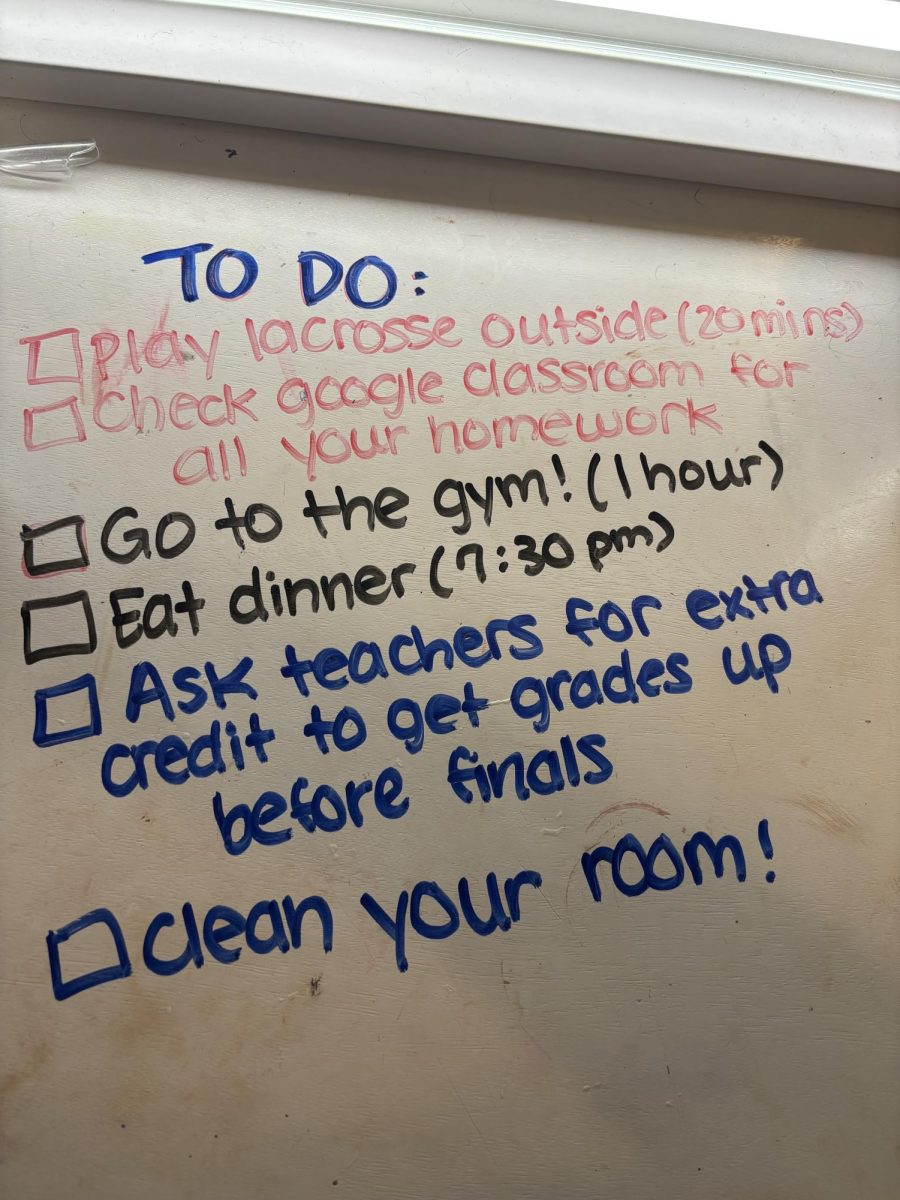 TO DO:
Play lacrosse outside (20 mins)
Check google classroom for
all your homework
Go to the gym! (1 hour)
Eat dinner (7:30 pm)
Ask teachers for extra
credit to get grades up
before finals
clean your room!